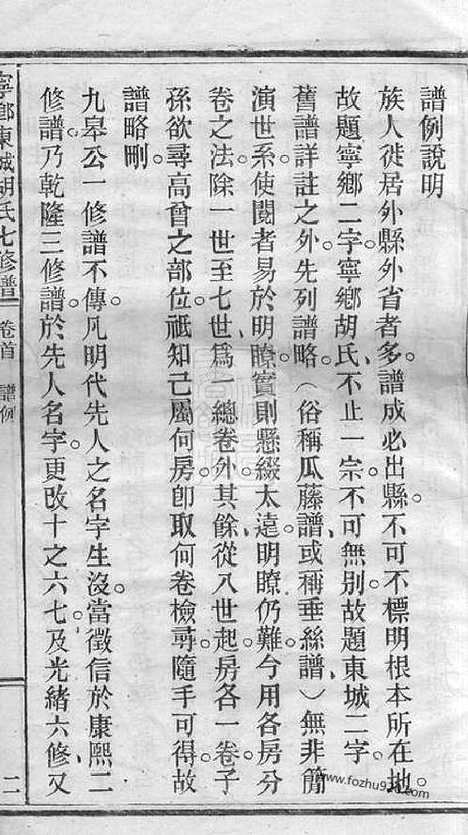 譜例說明
族人徙居外縣外省者多。譜成必出縣。不可不標明根本所在地。
故題寧鄉二字。寧鄉胡氏不止一宗。不可無別。故題東城二字。
舊譜詳註之外。先列譜略（俗稱瓜藤譜、或稱垂絲譜）無非簡
演世系。使閱者易於明瞭。實則懸綴太遠。明瞭仍難。今用各房分
卷之法。除一世至七世、爲一總卷外。其餘從八世起。房各一卷。子
孫欲尋高曾之部位。祗知己屬何房。卽取何卷檢尋。隨手可得。故
譜略刪。
九皋公一修譜不傳。凡明代先人之名字生沒。當徵信於康熙二
修譜。乃乾隆三修譜、於先人名字。更改十之六七。及光緒六修。又
寧鄉東城胡氏七修譜
卷首
譜例
二
www.fozhu9